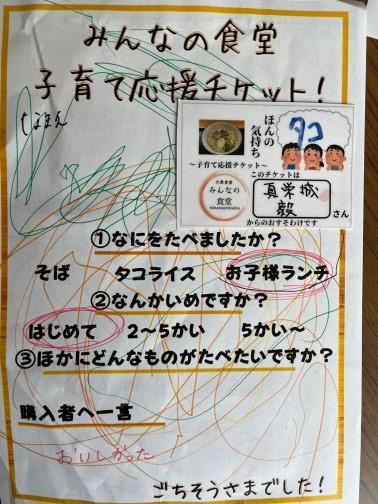 みんなの食堂
子育て応援チケット!
ほんの
気持ち
タコ
〜子育て応援チケット〜
このチケットは
大衆食堂
みんなの
食堂
真栄城
毅
さん
からのおすそわけです
①なにをたべましたか?
そば タコライス お子様ランチ
②なんかいめですか?
はじめて 2〜5かい 5かい〜
③ほかにどんなものがたべたいですか?
購入者へ一言
おいしかった
ごちそうさまでした!